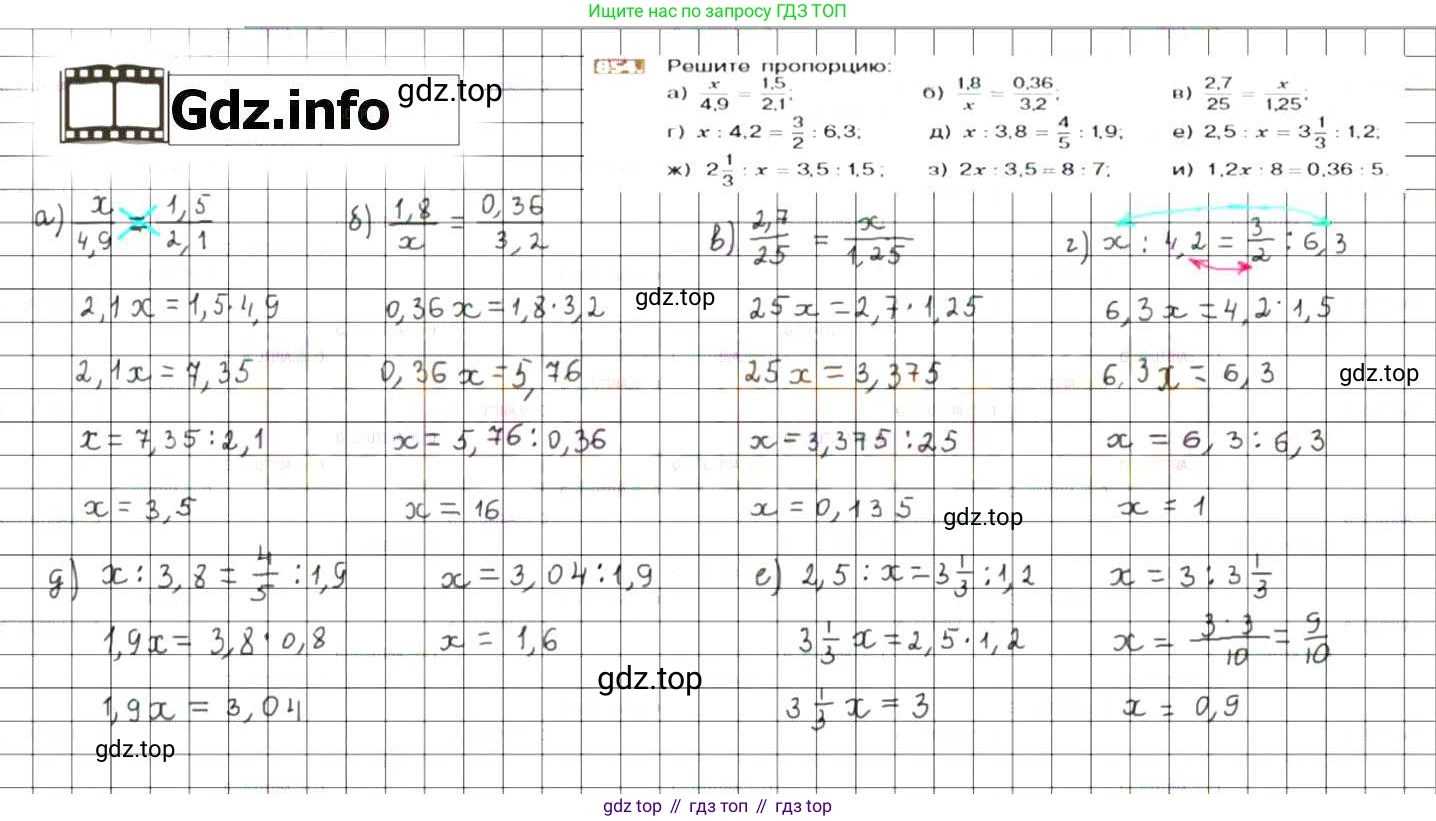 Ищите нас по запросу ГДЗ ТОП
Gdz.info
gdz.top
854. Решите пропорцию:
а) x/4,9 = 1,5/2,1; б) 1,8/x = 0,36/3,2; в) 2,7/25 = x/1,25;
г) x : 4,2 = 3/2 : 6,3; д) x : 3,8 = 4/5 : 1,9; е) 2,5 : x = 3 1/3 : 1,2;
ж) 2 1/3 : x = 3,5 : 1,5; з) 2x : 3,5 = 8 : 7; и) 1,2x : 8 = 0,36 : 5.
а) x/4,9 = 1,5/2,1
2,1x = 1,5·4,9
2,1x = 7,35
x = 7,35 : 2,1
x = 3,5
б) 1,8/x = 0,36/3,2
0,36x = 1,8·3,2
0,36x = 5,76
x = 5,76 : 0,36
x = 16
gdz.top
в) 2,7/25 = x/1,25
25x = 2,7·1,25
25x = 3,375
x = 3,375 : 25
x = 0,135
gdz.top
г) x : 4,2 = 3/2 : 6,3
6,3x = 4,2·1,5
6,3x = 6,3
x = 6,3 : 6,3
x = 1
gdz.top
д) x : 3,8 = 4/5 : 1,9
1,9x = 3,8·0,8
1,9x = 3,04
x = 3,04 : 1,9
x = 1,6
gdz.top
gdz.top
е) 2,5 : x = 3 1/3 : 1,2
3 1/3 x = 2,5·1,2
3 1/3 x = 3
x = 3 : 3 1/3
x = 3·3/10 = 9/10
x = 0,9
gdz top // гдз топ // gdz top